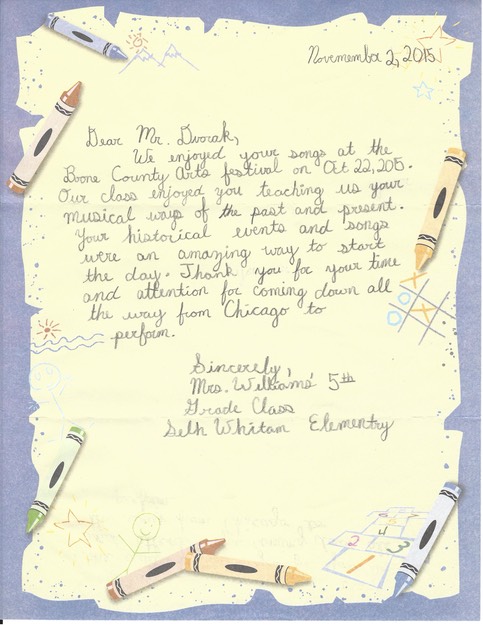 Novemember 2, 2015
Dear Mr. Dvorak,
We enjoyed your songs at the
Boone County Arts festival on Oct 22, 205.
Our class enjoyed you teaching us your
musical ways of the past and present.
Your historical events and songs
were an amazing way to start
the day. Thank you for your time
and attention for coming down all
the way from Chicago to
perform.
Sincerely,
Mrs. Williams' 5th
Grade Class
Selh Whitam Elementry
4
2 3